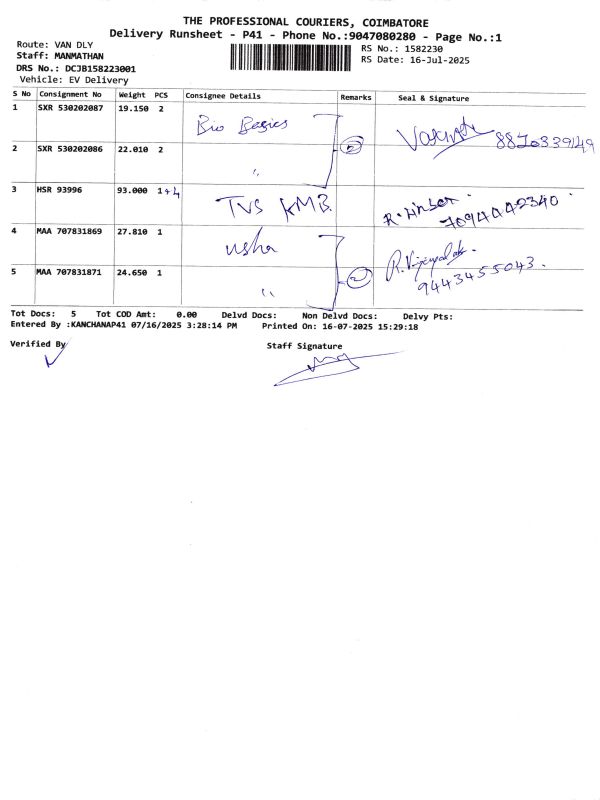 THE PROFESSIONAL COURIERS, COIMBATORE
Delivery Runsheet - P41 - Phone No.:9047080280 - Page No.:1
Route: VAN DLY
Staff: MANMATHAN
DRS No.: DCJB158223001
Vehicle: EV Delivery
RS No.: 1582230
RS Date: 16-Jul-2025
S No Consignment No Weight PCS Consignee Details Remarks Seal & Signature
1 SXR 530202087 19.150 2 Bio Basics
2 SXR 530202086 22.010 2 "
3 HSR 93996 93.000 1+4 TVS KMB 7094042340
4 MAA 707831869 27.810 1 usha
5 MAA 707831871 24.650 1 " 9443455043
Tot Docs: 5 Tot COD Amt: 0.00 Delvd Docs: Non Delvd Docs: Delvy Pts:
Entered By :KANCHANAP41 07/16/2025 3:28:14 PM Printed On: 16-07-2025 15:29:18
Verified By Staff Signature